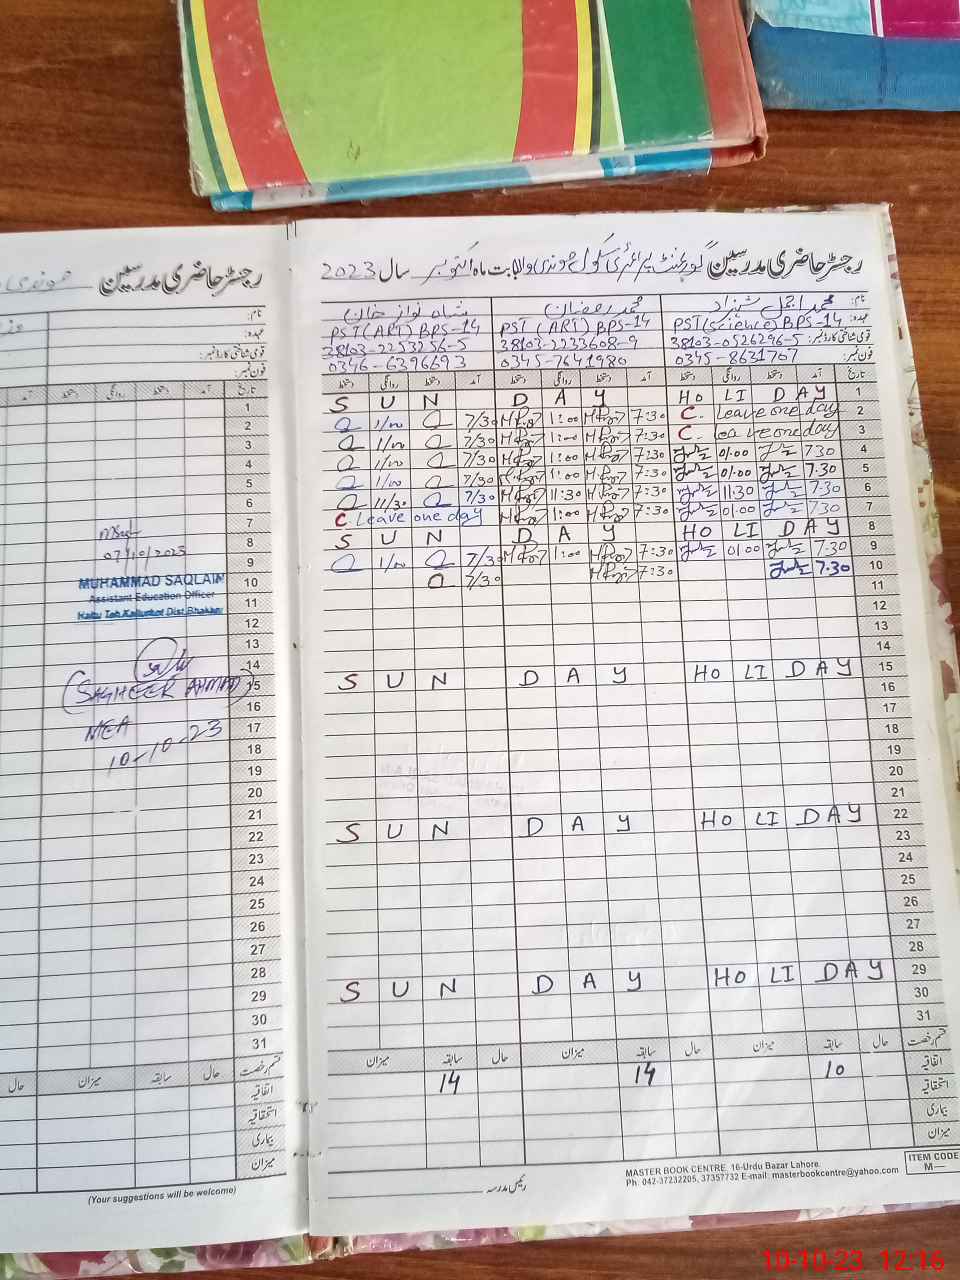 رجسٹر حاضری مدرسین گورنمنٹ پرائمری سکول جوندی والا بابت ماہ اکتوبر سال 2023
نام: محمد اجمل شہزاد محمد رمضان شاہ نواز خان
عہدہ: PST(Science) BPS-14 PST (ART) BPS-14 PST (ART) BPS-14
قومی شناختی کارڈ نمبر: 38103-0526296-5 38103-2233608-9 38103-2253256-5
فون نمبر: 0345-8631767 0345-7641980 0346-6396693
تاریخ آمد دستخط روانگی دستخط آمد دستخط روانگی دستخط آمد دستخط روانگی دستخط
S U N D A Y HO LI D A Y 1
1/00 7/30 1:00 7:30 C. Leave one day 2
1/00 7/30 1:00 7:30 C. Leave one day 3
1/00 7/30 1:00 7:30 01:00 7.30 4
1/00 7/30 1:00 7:30 01:00 7.30 5
11/30 7/30 11:30 7:30 11:30 7.30 6
C. Leave one day 1:00 7:30 01:00 7.30 7
S U N D A Y HO LI D A Y 8
1/00 7/30 1:00 7:30 01:00 7.30 9
7/30 7:30 7.30 10
11
12
13
14
S U N D A Y HO LI DAY 15
16
17
18
19
20
21
S U N D A Y HO LI DAY 22
23
24
25
26
27
28
S U N D A Y HO LI DAY 29
30
31
قسم رخصت حال سابقہ میزان حال سابقہ میزان حال سابقہ میزان
اتفاقیہ 10 14 14
استحقاقیہ
بیماری
میزان
رئیس مدرسہ
MASTER BOOK CENTRE 16-Urdu Bazar Lahore.
Ph. 042-37232205, 37357732 E-mail: masterbookcentre@yahoo.com
ITEM CODE
M—
رجسٹر حاضری مدرسین
نام:
عہدہ:
قومی شناختی کارڈ نمبر:
فون نمبر:
تاریخ آمد دستخط روانگی دستخط آمد
1
2
3
4
5
6
7
8
9
10
11
12
13
14
15
16
17
18
19
20
21
22
23
24
25
26
27
28
29
30
31
07/10/2023
MUHAMMAD SAQLAIN
Assistant Education Officer
(SAGHEER AHMAD)
MEA
10-10-23
قسم رخصت حال سابقہ میزان حال
اتفاقیہ
استحقاقیہ
بیماری
میزان
(Your suggestions will be welcome)
10-10-23 12:16